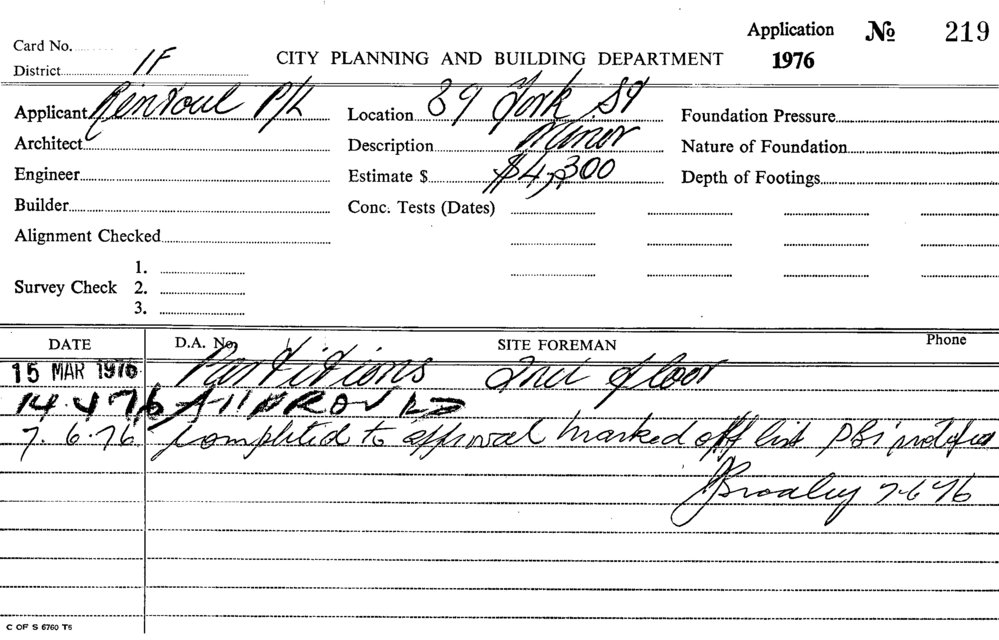 Application № 219
Card No.
1976
District 1F
CITY PLANNING AND BUILDING DEPARTMENT
Applicant Rentoul P/L
Location 89 York St
Foundation Pressure
Architect
Description Minor
Nature of Foundation
Engineer
Estimate $ $4,300
Depth of Footings
Builder
Conc. Tests (Dates)
Alignment Checked
Survey Check 1.
2.
3.
DATE D.A. No. SITE FOREMAN Phone
15 MAR 1976 Partitions 2nd floor
14.4.76 APPROVED
7.6.76 Completed to approval marked off list PBI notified
7-6-76
C OF S 6760 T6